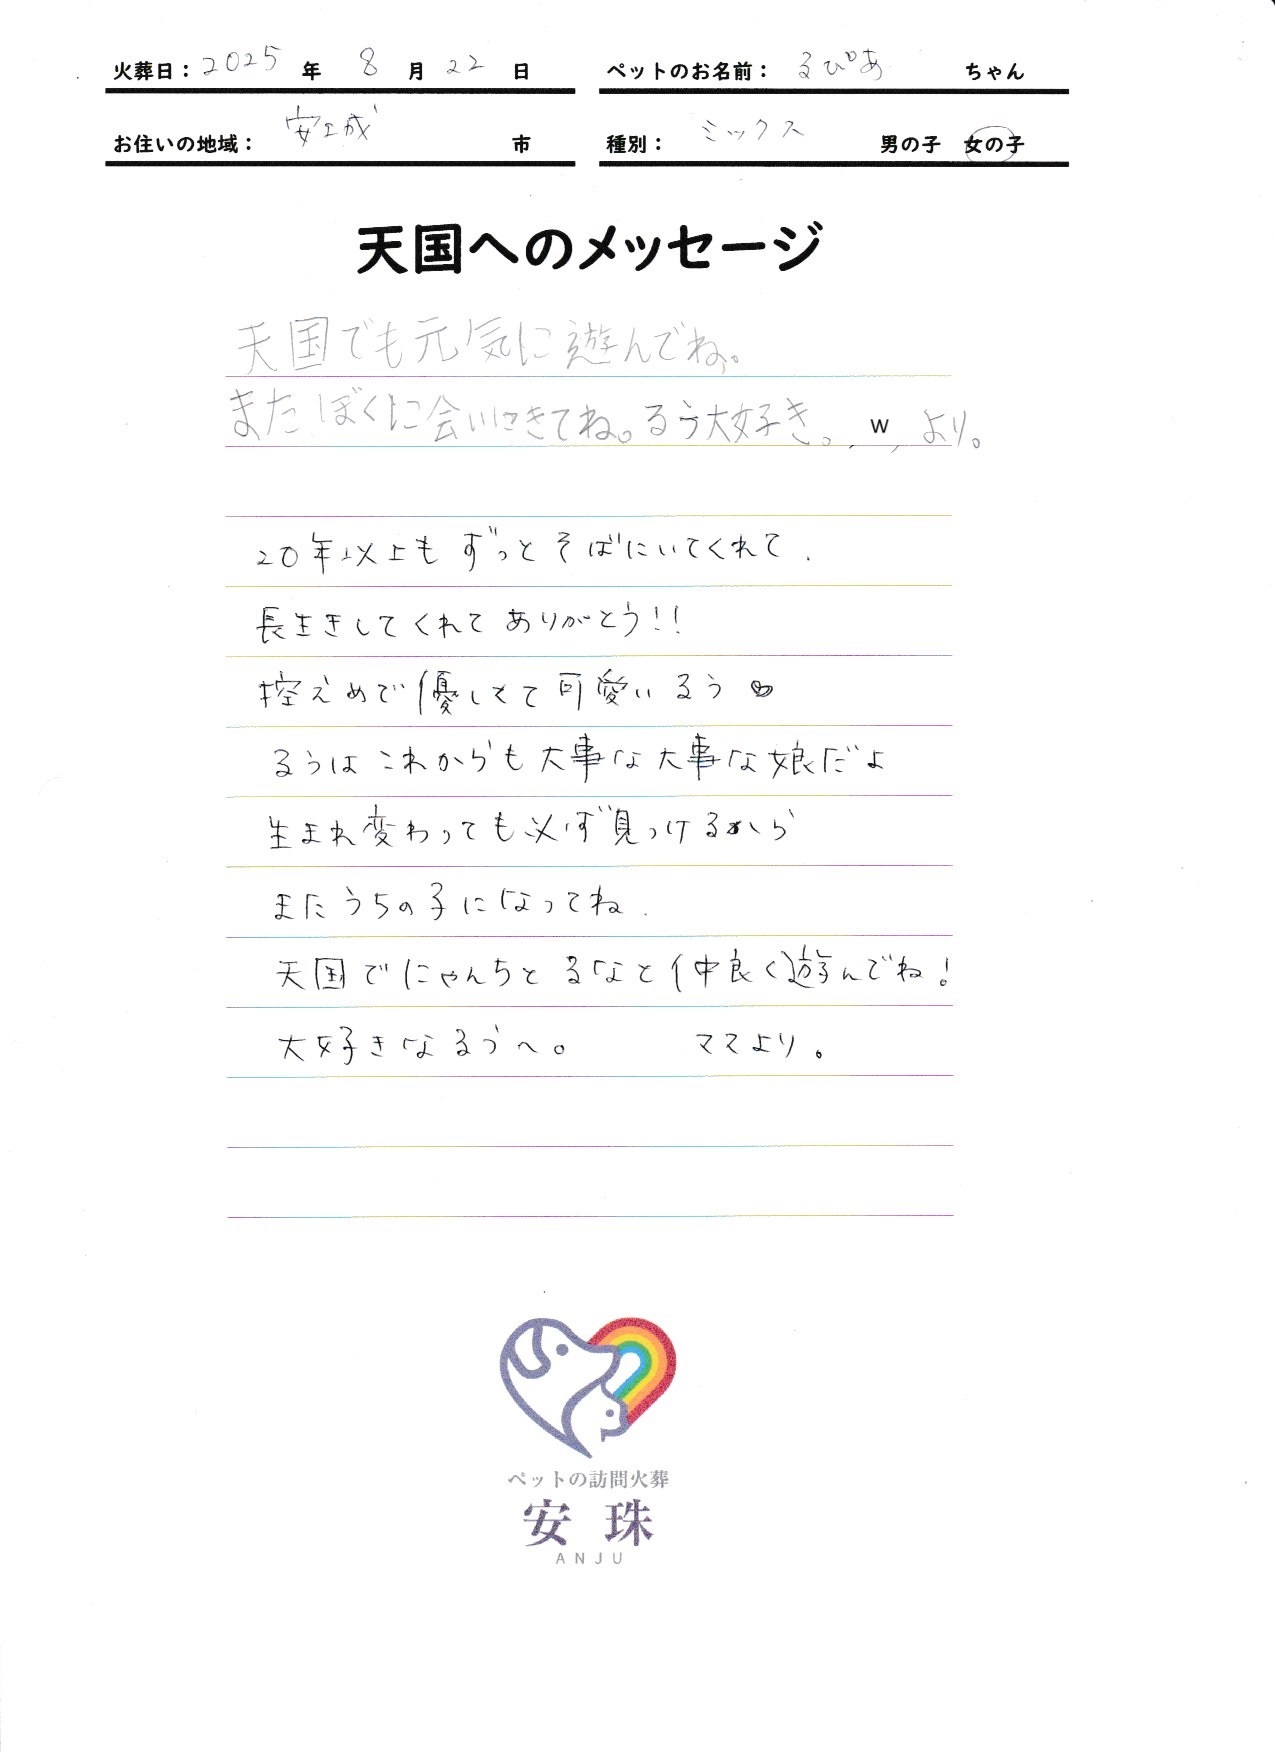 火葬日：2025年 8月22日
ペットのお名前：るぴあ ちゃん
お住いの地域：安城 市
種別：ミックス 男の子 女の子
天国へのメッセージ
天国でも元気に遊んでね。
またぼくに会いにきてね。るう大好き。 w より。
20年以上もずっとそばにいてくれて、
長生きしてくれてありがとう!!
控えめで優しくて可愛いるう♡
るうはこれからも大事な大事な娘だよ
生まれ変わっても必ず見つけるから
またうちの子になってね.
天国でにゃんちとるなと仲良く遊んでね!
大好きなるうへ。 ママより。
ペットの訪問火葬
安珠
ANJU